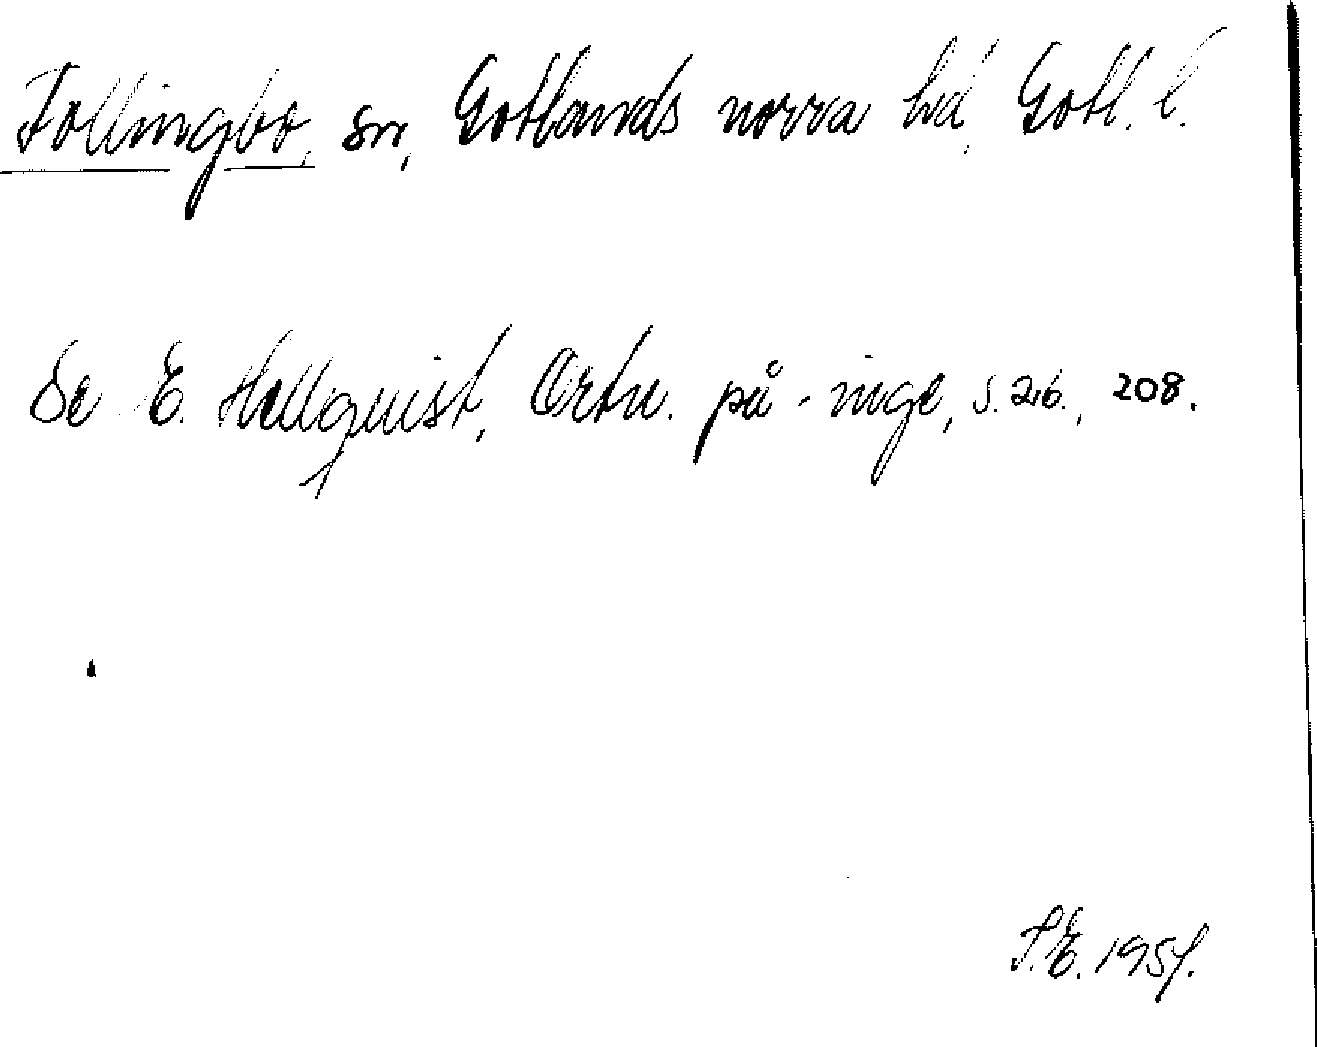 Follingbo, sn, Gotlands norra hd, Gotl. l.
Se E. Hellquist, Ortn. på -inge, s. 26., 208.
S.E. 1957.